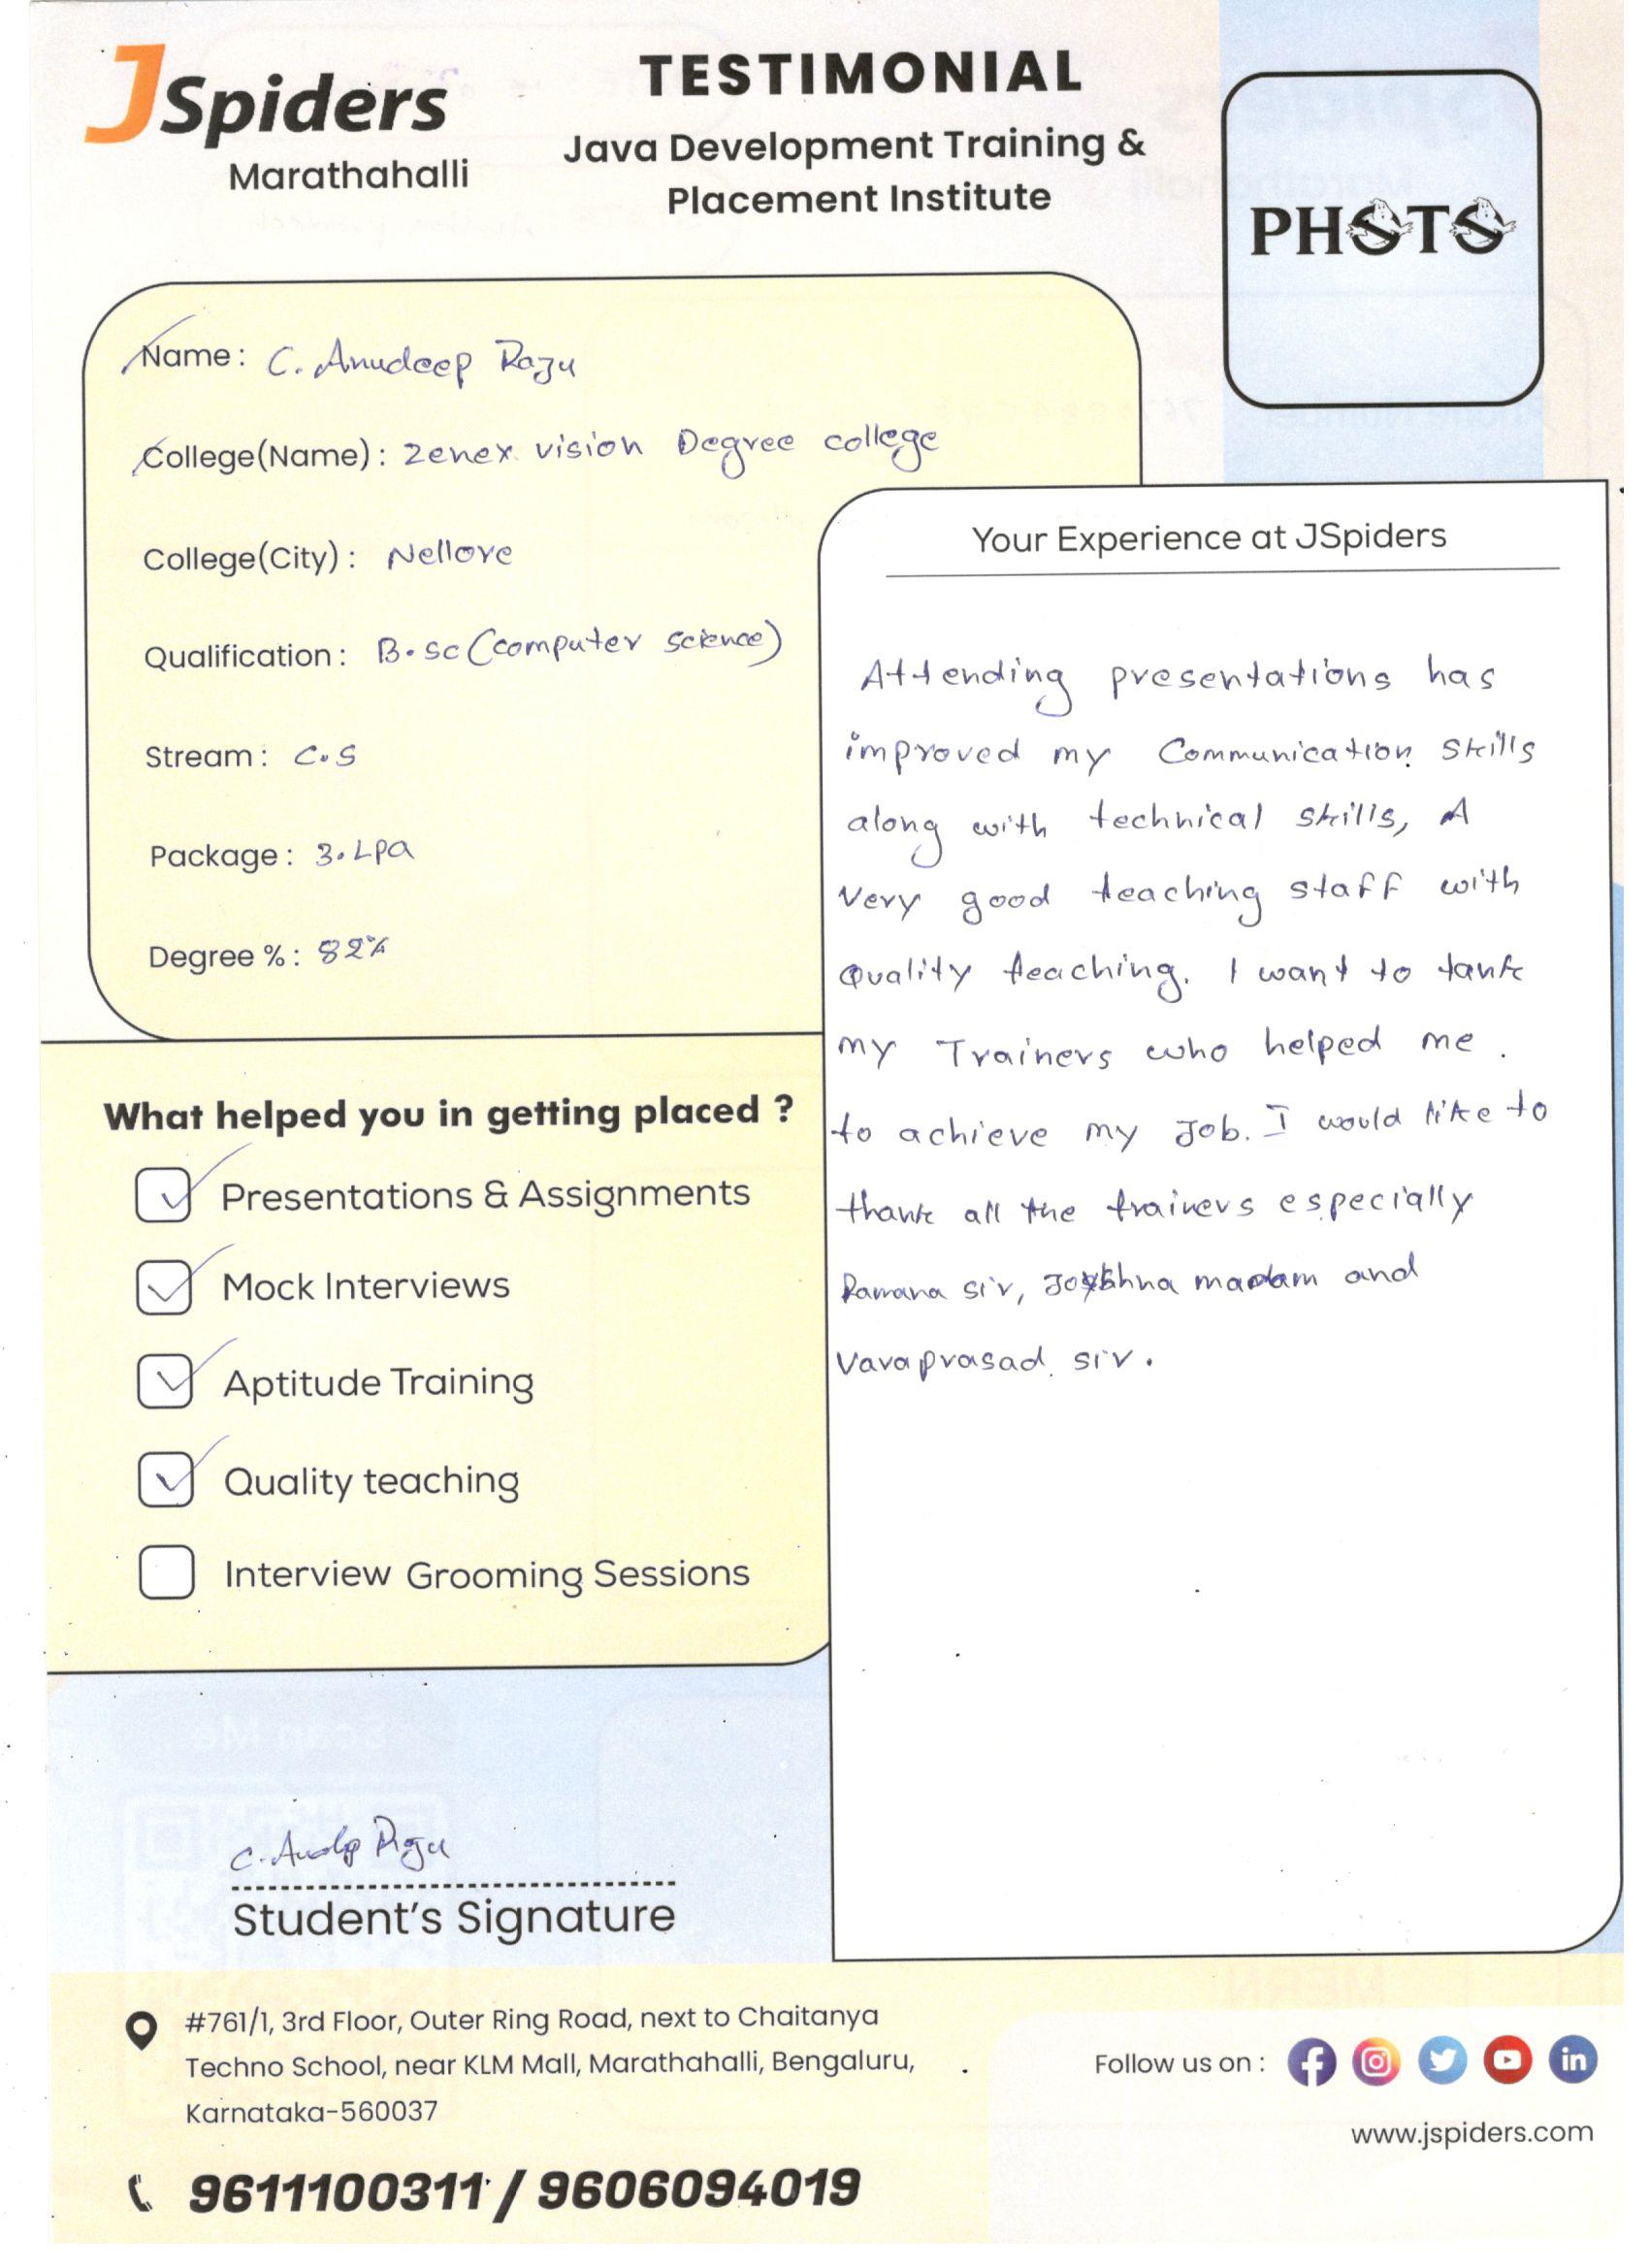 JSpiders
Marathahalli
TESTIMONIAL
Java Development Training &
Placement Institute
PHOTO
Name : C. Anudeep Raju
College(Name) : Zenex vision Degree college
College(City) : Nellore
Qualification : B.sc (computer science)
Stream : C.S
Package : 3.Lpa
Degree % : 82%
What helped you in getting placed ?
Presentations & Assignments
Mock Interviews
Aptitude Training
Quality teaching
Interview Grooming Sessions
Your Experience at JSpiders
Attending presentations has
improved my Communication skills
along with technical skills, A
very good teaching staff with
Quality teaching. I want to tank
my Trainers who helped me .
to achieve my Job. I would like to
thank all the trainers especially
Ramana sir, madam and
Varaprasad sir.
C. Raju
Student's Signature
#761/1, 3rd Floor, Outer Ring Road, next to Chaitanya
Techno School, near KLM Mall, Marathahalli, Bengaluru,
Karnataka-560037
9611100311 / 9606094019
Follow us on :
www.jspiders.com